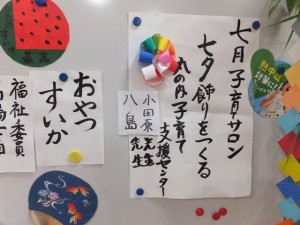 七月子育サロン
七夕飾りをつくる
丸の内子育て
支援センター
小田原先生
八島先生
おやつ
すいか
福祉委員